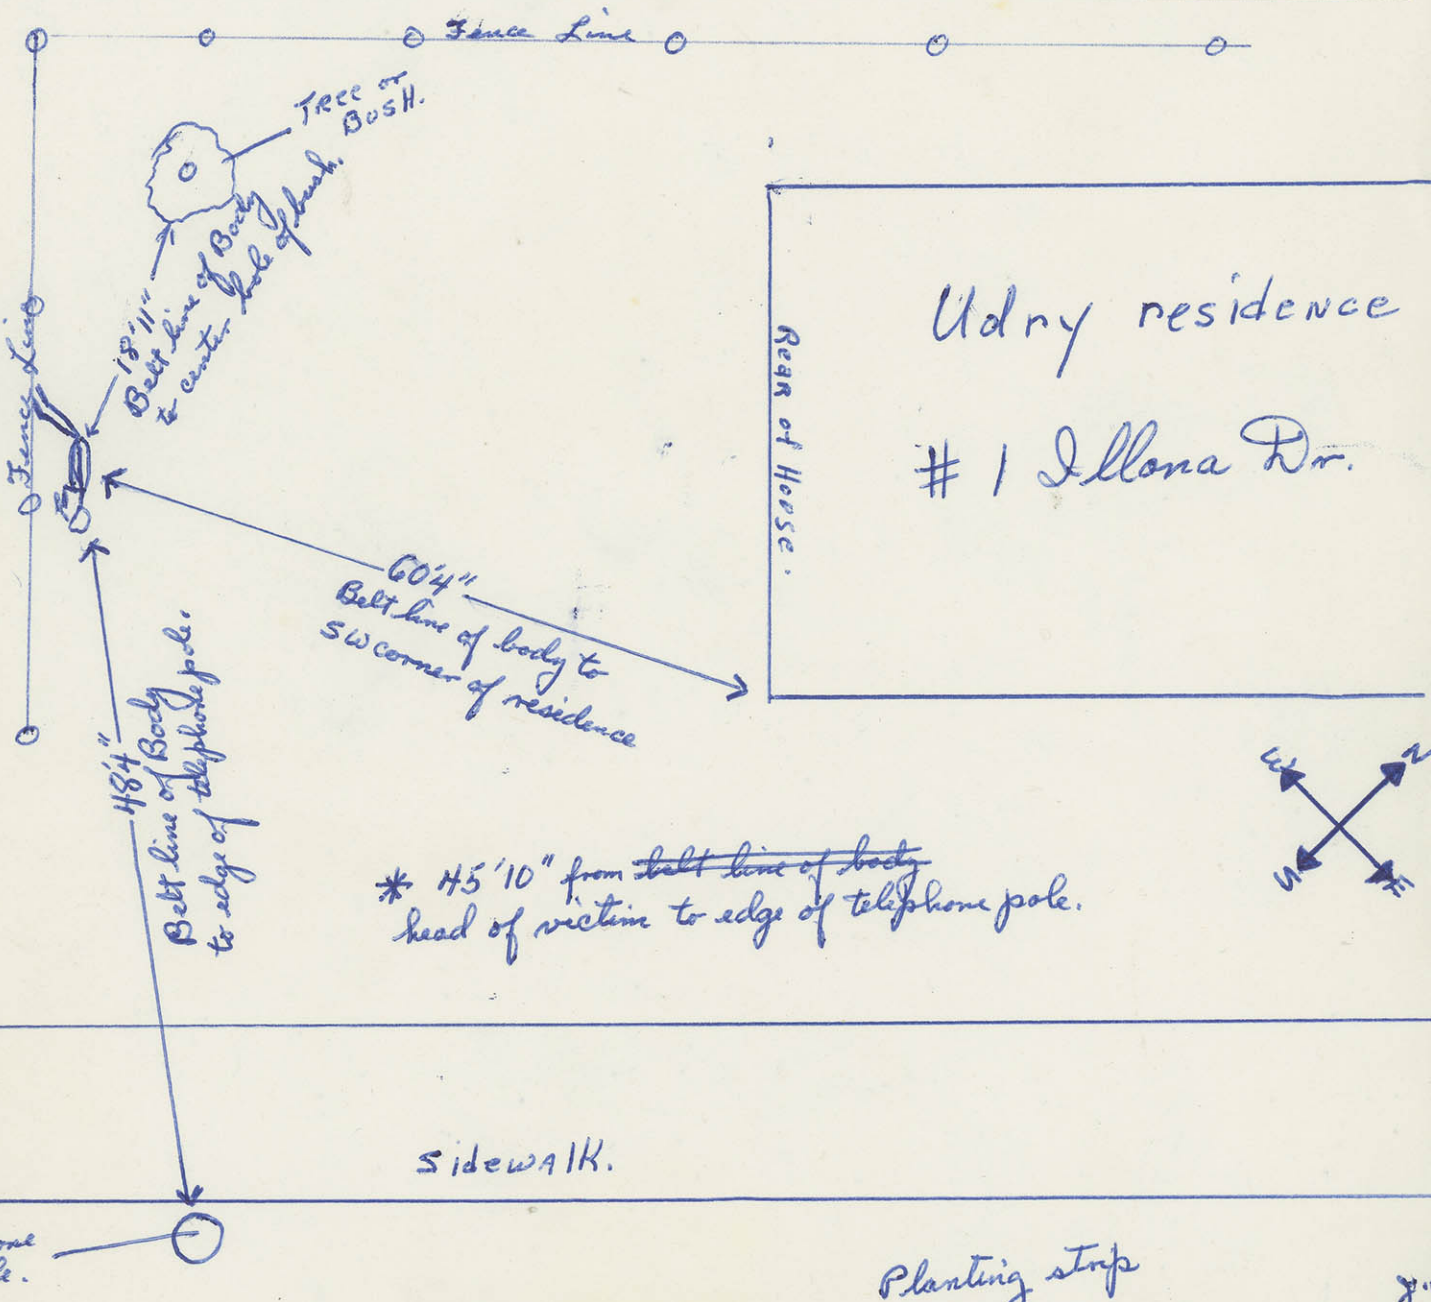 Fence Line
TREE or
BUSH.
18'11"
Belt line of Body
to center hole of bush.
Fence Line
Rear of House.
Udry residence
# 1 Illona Dr.
60'4"
Belt line of body to
SW corner of residence
48'4"
Belt line of Body
to edge of telephone pole.
W
N
S
E
* 45'10" from belt line of body
head of victim to edge of telephone pole.
Sidewalk.
Planting strip